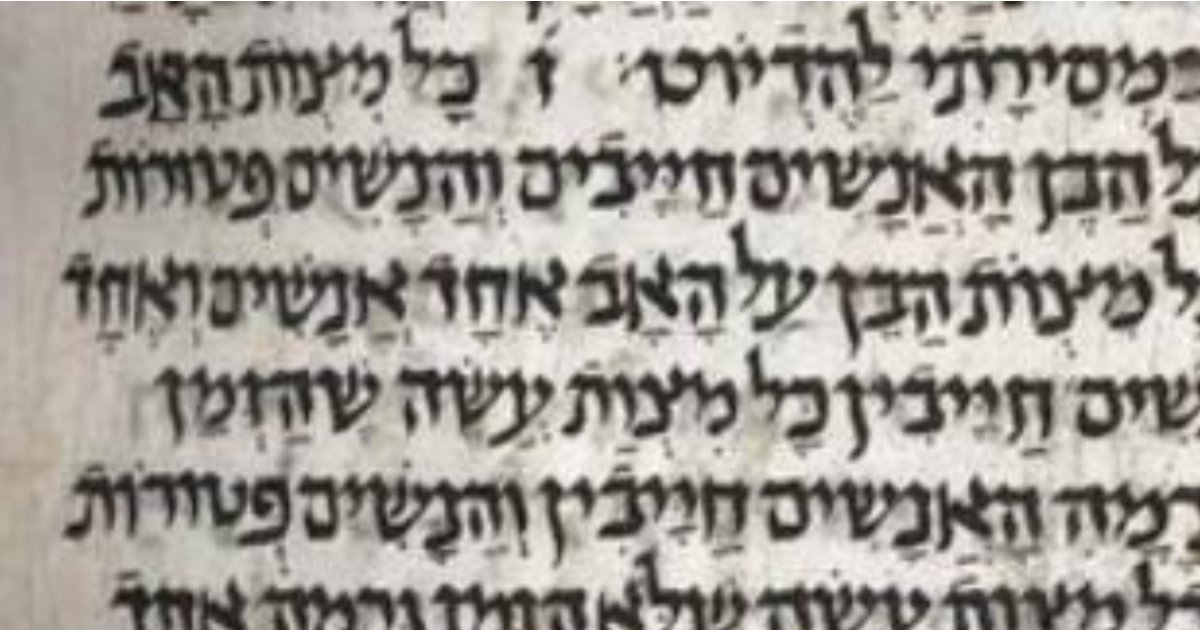 מְסִירָתוֹ לַהֶדְיוֹט: ו כָל מִצְוֹת הָאָב
עַל הַבֵּן הָאֲנָשִׁים חַיָיבִים וְהַנָשִׁים פְּטוּרוֹת
כל מִצְוֹת הַבֵּן עַל הָאָב אֶחָד אֲנָשִׁים וְאֶחָד
נשִׁים חַיָיבִין כָל מִצְוַת עֲשֵׂה שֶׁהַזְמַן
גרָמָהּ הָאֲנָשִׁים חַיָיבִין וְהַנָשִׁים פְּטוּרוֹת
כל מצות עשה שלא הזמן גרמה אחד